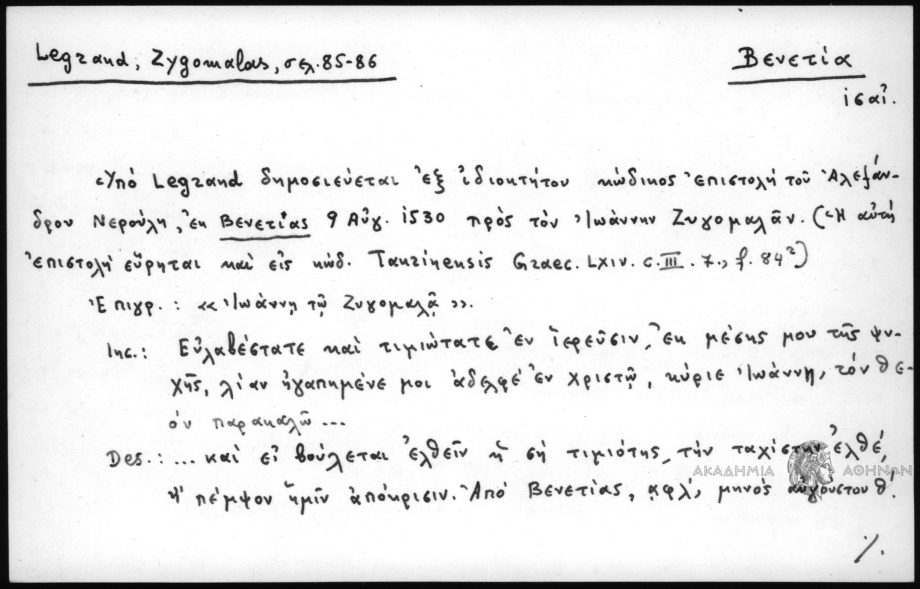 Legrand, Zygomalas, σελ. 85-86
Βενετία
ις αἰ.
Ὑπό Legrand δημοσιεύεται ἐξ ἰδιοκτήτου κώδικος ἐπιστολή τοῦ Ἀλεξάν-
δρου Νερούλη, ἐκ Βενετίας 9 Αὐγ. 1530 πρός τόν Ἰωάννην Ζυγομαλᾶν. (Ἡ αὐτή
ἐπιστολή εὕρηται καί εἰς κώδ. Taurinensis Graec. LXIV. c. III. 7., f. 84²)
Ἐπιγρ.: «Ἰωάννῃ τῷ Ζυγομαλᾷ».
Inc.: Εὐλαβέστατε καί τιμιώτατε ἐν ἱερεῦσιν, ἐκ μέσης μου τῆς ψυ-
χῆς, λίαν ἠγαπημένε μοι ἀδελφέ ἐν Χριστῷ, κύριε Ἰωάννη, τόν θε-
όν παρακαλῶ ...
Des.: ... καί εἰ βούλεται ἐλθεῖν ἡ σή τιμιότης, τήν ταχίστην ἐλθέ,
ἤ πέμψον ἡμῖν ἀπόκρισιν. Ἀπό Βενετίας, ͵αφλ΄, μηνός αὐγούστου θ΄.
ΑΚΑΔΗΜΙΑ ΑΘΗΝΩΝ
%.